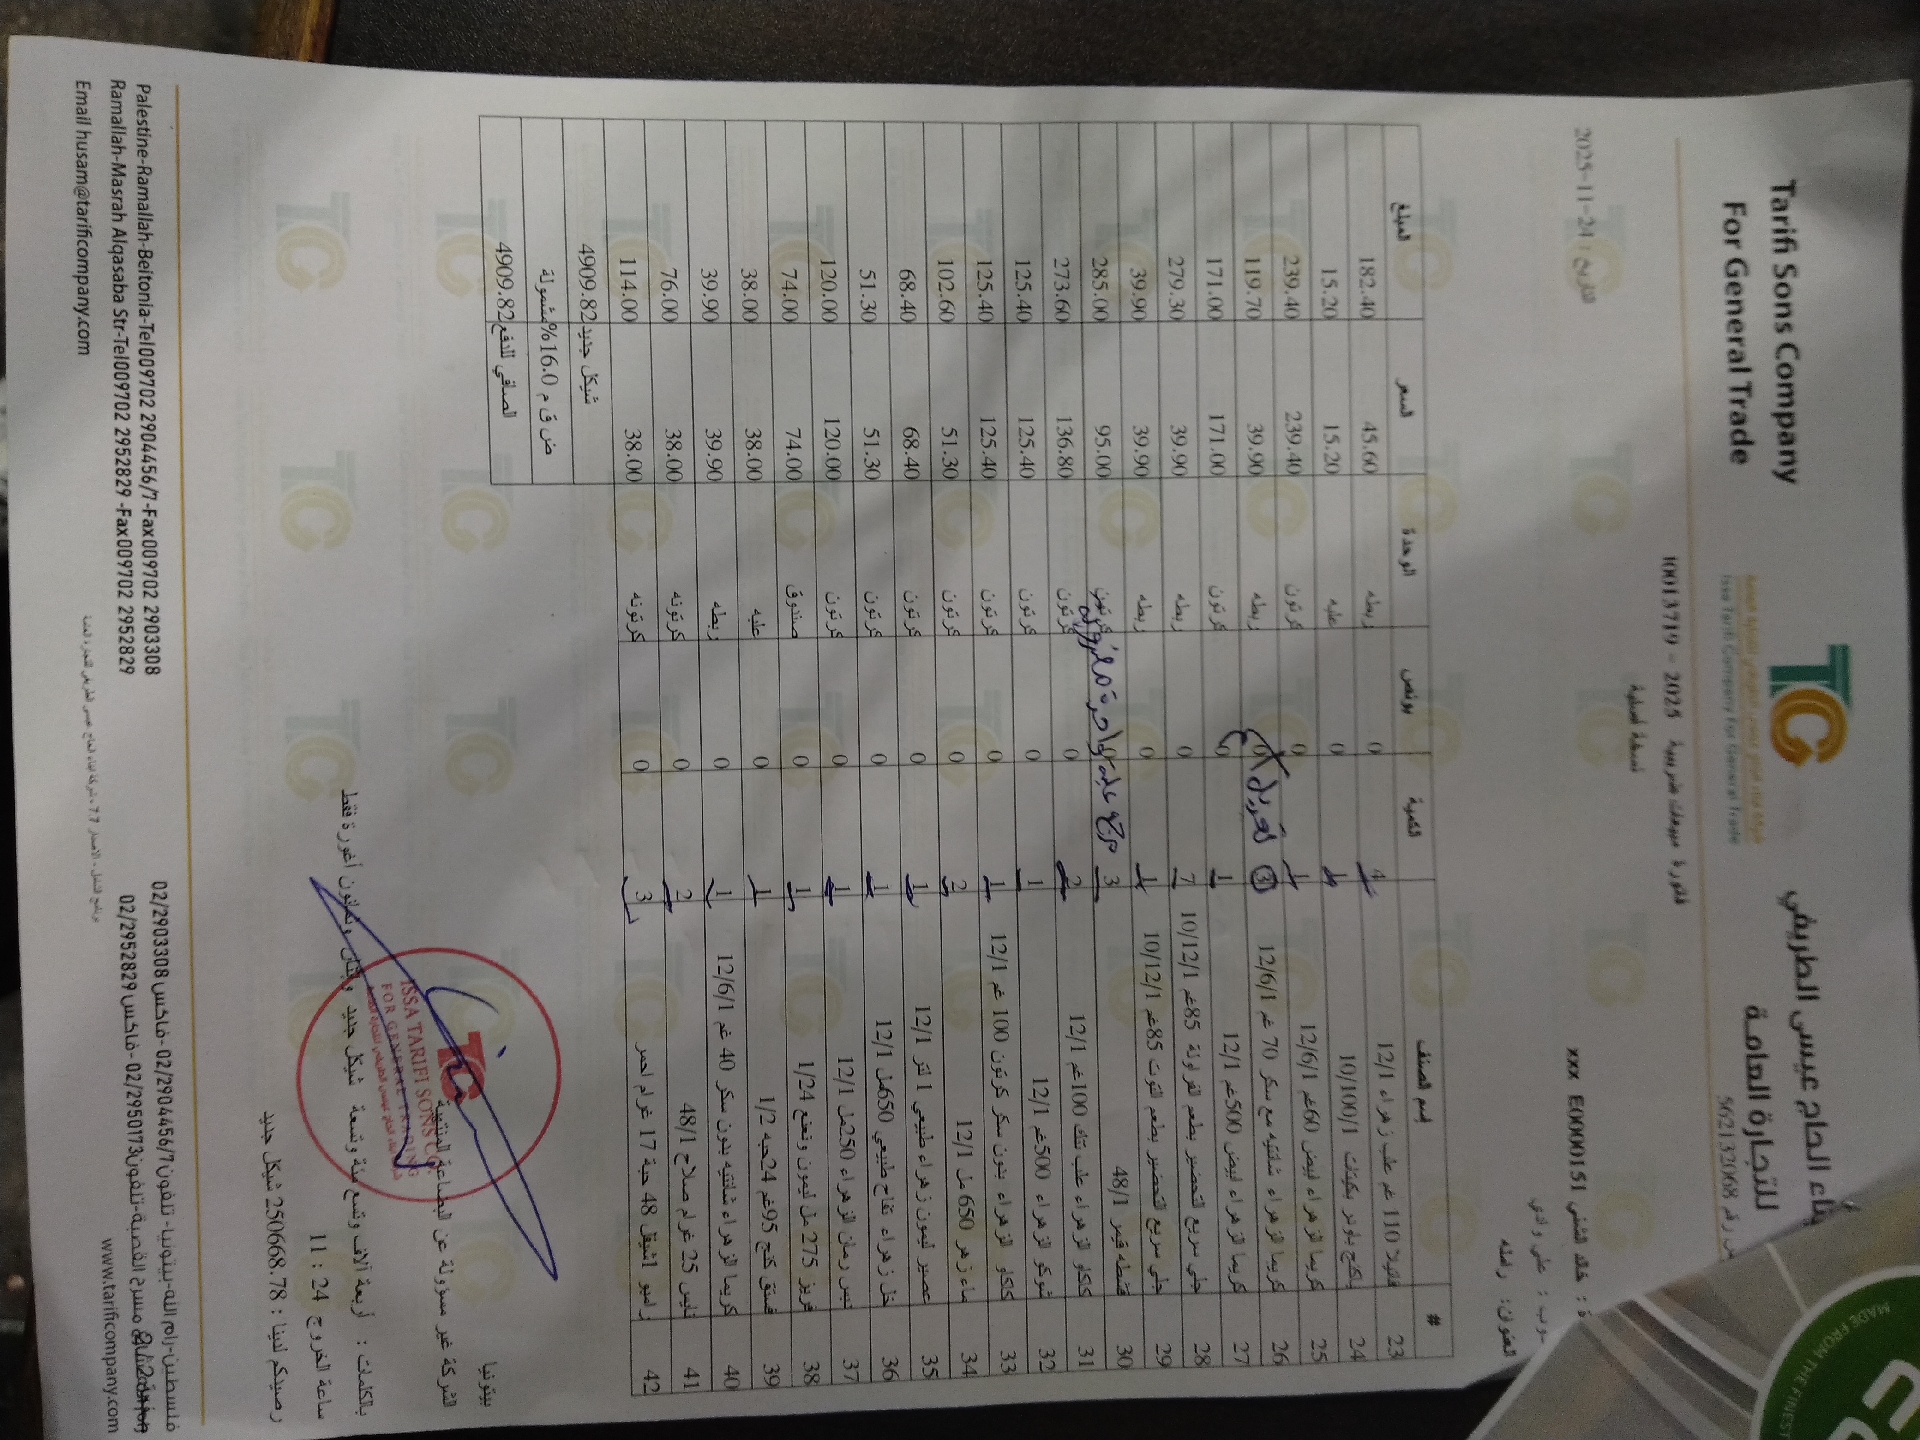 Tarifi Sons Company
For General Trade
TC
أبناء الحاج عيسى الطريفي
للتجارة العامة
562132068
Issa Tarifi Company For General Trade
فاتورة مبيعات ضريبية 2025 - 10013719
نسخة أصلية
التاريخ : 24-11-2025
xxx E0000151
العنوان: رام الله
# إسم الصنف الكمية بونص الوحدة السعر المبلغ
23 12/1 110 غم علب زهراء 4 0 ربطه 45.60 182.40
24 10/100/1 1 0 علبه 15.20 15.20
25 كريما الزهراء ابيض 60غم 12/6/1 1 0 كرتون 239.40 239.40
26 كريما الزهراء شانتيه مع سكر 70 غم 12/6/1 3 0 ربطه 39.90 119.70
27 كريما الزهراء ابيض 500غم 12/1 1 0 كرتون 171.00 171.00
28 جلي سريع التحضير بطعم الفراولة 85غم 10/12/1 7 0 ربطه 39.90 279.30
29 جلي سريع التحضير بطعم التوت 85غم 10/12/1 1 0 ربطه 39.90 39.90
30 قشطه 48/1 3 0 كرتون 95.00 285.00
31 كاكاو الزهراء علب تنك 100غم 12/1 2 0 كرتون 136.80 273.60
32 شوكو الزهراء 500غم 12/1 1 0 كرتون 125.40 125.40
33 كاكاو الزهراء بدون سكر كرتون 100 غم 12/1 1 0 كرتون 125.40 125.40
34 ماء زهر 650 مل 12/1 2 0 كرتون 51.30 102.60
35 عصير ليمون زهراء طبيعي 1 لتر 12/1 1 0 كرتون 68.40 68.40
36 خل زهراء تفاح طبيعي 650مل 12/1 1 0 كرتون 51.30 51.30
37 دبس رمان الزهراء 250مل 12/1 1 0 كرتون 120.00 120.00
38 فريز 275 مل ليمون ونعنع 1/24 1 0 صندوق 74.00 74.00
39 فستق كنج 95غم 24حبه 1/2 1 0 علبه 38.00 38.00
40 كريما الزهراء شانتيه بدون سكر 40 غم 12/6/1 1 0 ربطه 39.90 39.90
41 نايس 25 غرام صلاح 48/1 2 0 كرتونه 38.00 76.00
42 رامبو 1شيقل 48 حبة 17 غرام احمر 3 0 كرتونه 38.00 114.00
شيكل جديد 4909.82
ض ق م 16.0% مشمولة
الصافي للدفع 4909.82
بيتونيا
الشركة غير مسؤولة عن البضاعة المنتهية
بالكلمات : أربعة آلاف وتسع مئة وتسعة شيكل جديد وإثنان وثمانون أغورة فقط
ساعة الخروج 24 : 11
رصيدكم لدينا : 250668.78 شيكل جديد
ISSA TARIFI SONS CO.
FOR GENERAL TRADING
Palestine-Ramallah-Beitonia-Tel009702 2904456/7-Fax009702 2903308
Ramallah-Masrah Alqasaba Str-Tel009702 2952829 -Fax009702 2952829
Email husam@tarificompany.com
فلسطين-رام الله-بيتونيا- تلفون 02/2904456/7 - فاكس 02/2903308
مسرح القصبة-تلفون 02/2950173 - فاكس 02/2952829
www.tarificompany.com
MADE FROM THE FINEST